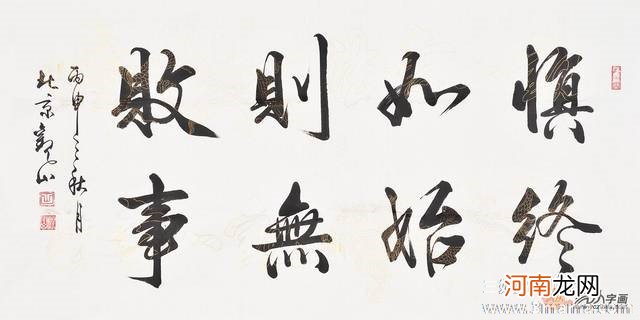 慎終
如始
則無
敗事
丙申之秋月
北京山
河南龙网
八字画